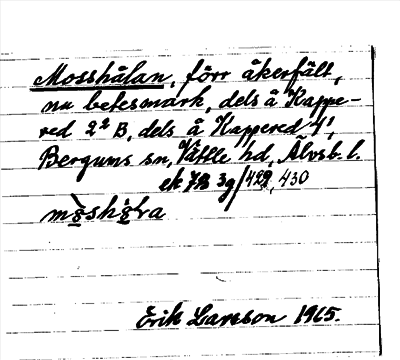 Mosshålan, förr åkerfält,
nu betesmark, dels å Kappe-
red 2² B, dels å Kappered 4¹,
Bergums sn, Vättle hd, Älvsb. l.
ek 3g/429, 430
Erik Larsson 1965.